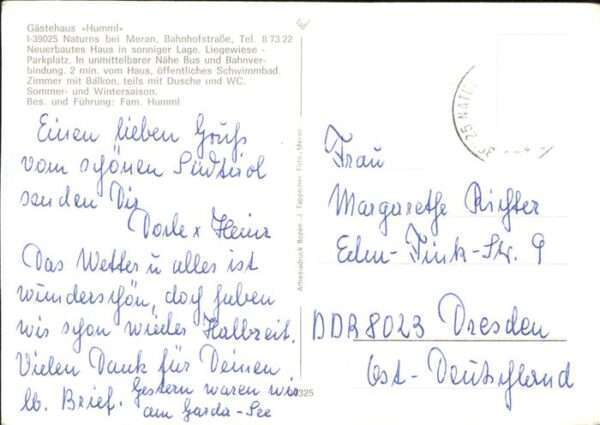 Gästehaus »Humml«
I-39025 Naturns bei Meran, Bahnhofstraße, Tel. 8 73 22
Neuerbautes Haus in sonniger Lage. Liegewiese -
Parkplatz. In unmittelbarer Nähe Bus und Bahnver-
bindung. 2 min. vom Haus, öffentliches Schwimmbad.
Zimmer mit Balkon, teils mit Dusche und WC.
Sommer- und Wintersaison.
Bes. und Führung: Fam. Humml
Einen lieben Gruß
vom schönen Südtirol
senden Dir
Dorle + Heinz
Das Wetter u alles ist
wunderschön, doch haben
wir schon wieder Halbzeit.
Vielen Dank für Deinen
lb. Brief. Gestern waren wir
am Garda-See
Athesiadruck Bozen, J. Tappeiner Foto, Meran
Frau
Margarethe Richter
-Fink-Str. 9
DDR 8023 Dresden
Ost-Deutschland